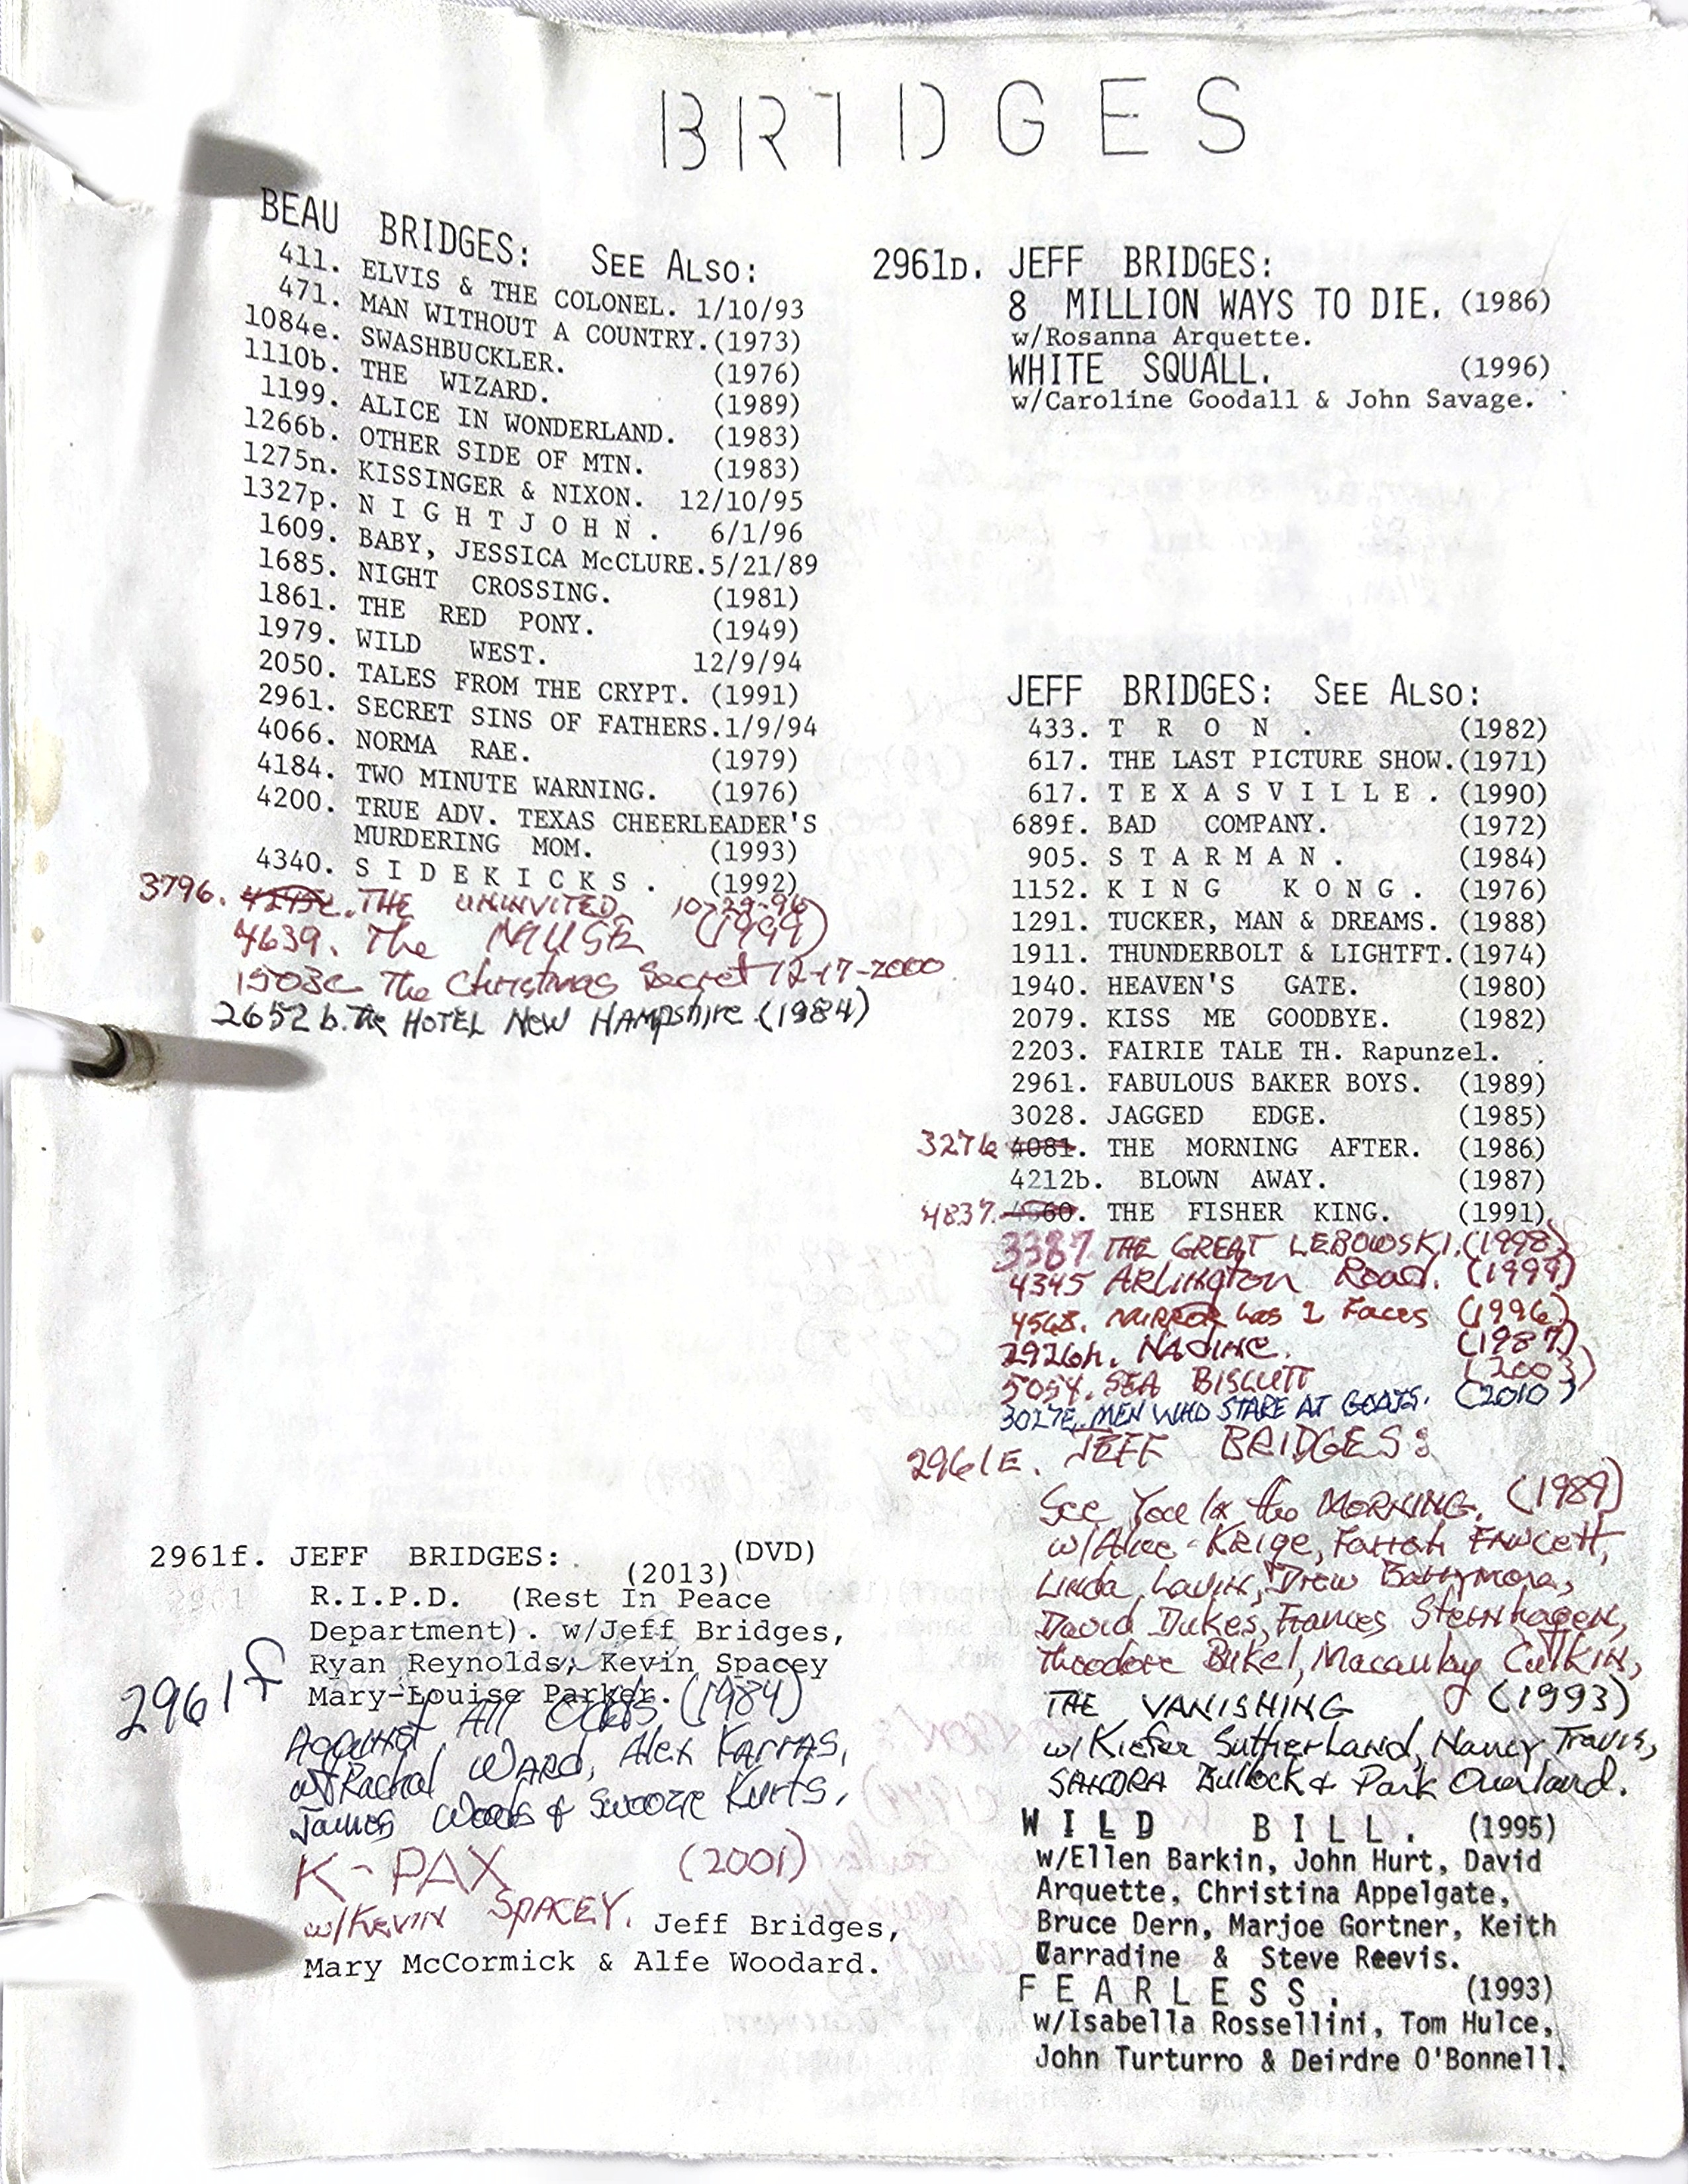 BRIDGES
BEAU BRIDGES: SEE ALSO:
411. ELVIS & THE COLONEL. 1/10/93
471. MAN WITHOUT A COUNTRY. (1973)
1084e. SWASHBUCKLER. (1976)
1110b. THE WIZARD. (1989)
1199. ALICE IN WONDERLAND. (1983)
1266b. OTHER SIDE OF MTN. (1983)
1275n. KISSINGER & NIXON. 12/10/95
1327p. N I G H T J O H N . 6/1/96
1609. BABY, JESSICA McCLURE. 5/21/89
1685. NIGHT CROSSING. (1981)
1861. THE RED PONY. (1949)
1979. WILD WEST. 12/9/94
2050. TALES FROM THE CRYPT. (1991)
2961. SECRET SINS OF FATHERS. 1/9/94
4066. NORMA RAE. (1979)
4184. TWO MINUTE WARNING. (1976)
4200. TRUE ADV. TEXAS CHEERLEADER'S
MURDERING MOM. (1993)
4340. S I D E K I C K S . (1992)
3796. THE UNINVITED 10-29-96
4639. The MUSE (1999)
1503c The Christmas Secret 12-17-2000
2652b. The HOTEL NEW HAMPShire (1984)
2961f. JEFF BRIDGES: (DVD)
(2013)
R.I.P.D. (Rest In Peace
Department). w/Jeff Bridges,
Ryan Reynolds, Kevin Spacey
Mary-Louise Parker.
2961f Against All Odds (1984)
w/Rachal WARD, Alex KARRAS,
James Woods & Swoozie Kurts,
K-PAX (2001)
w/KEVIN SPACEY. Jeff Bridges,
Mary McCormick & Alfe Woodard.
2961D. JEFF BRIDGES:
8 MILLION WAYS TO DIE. (1986)
w/Rosanna Arquette.
WHITE SQUALL. (1996)
w/Caroline Goodall & John Savage.
JEFF BRIDGES: SEE ALSO:
433. T R O N . (1982)
617. THE LAST PICTURE SHOW. (1971)
617. T E X A S V I L L E . (1990)
689f. BAD COMPANY. (1972)
905. S T A R M A N . (1984)
1152. K I N G K O N G . (1976)
1291. TUCKER, MAN & DREAMS. (1988)
1911. THUNDERBOLT & LIGHTFT. (1974)
1940. HEAVEN'S GATE. (1980)
2079. KISS ME GOODBYE. (1982)
2203. FAIRIE TALE TH. Rapunzel.
2961. FABULOUS BAKER BOYS. (1989)
3028. JAGGED EDGE. (1985)
4081. THE MORNING AFTER. (1986)
4212b. BLOWN AWAY. (1987)
4837. THE FISHER KING. (1991)
3387 THE GREAT LEBOWSKI. (1998)
4345 ARLington Road. (1999)
4568. MIRROR has 2 Faces (1996)
2926h. NADINE. (1987)
5054. SEA BISCUIT (2003)
3027E. MEN WHO STARE AT GOATS. (2010)
2961E. JEFF BRIDGES:
See You In the MORNING. (1989)
w/Alice Krige, Farrah FAWCett,
Linda Lavin, Drew Barrymore,
David Dukes, Frances Sternhagen,
Theodore Bikel, Macaulay CulKIN,
THE VANISHING (1993)
w/Kiefer Sutherland, Nancy Travis,
SANDRA Bullock & Park Overland.
W I L D B I L L . (1995)
w/Ellen Barkin, John Hurt, David
Arquette, Christina Appelgate,
Bruce Dern, Marjoe Gortner, Keith
Carradine & Steve Reevis.
F E A R L E S S . (1993)
w/Isabella Rossellini, Tom Hulce,
John Turturro & Deirdre O'Bonnell.